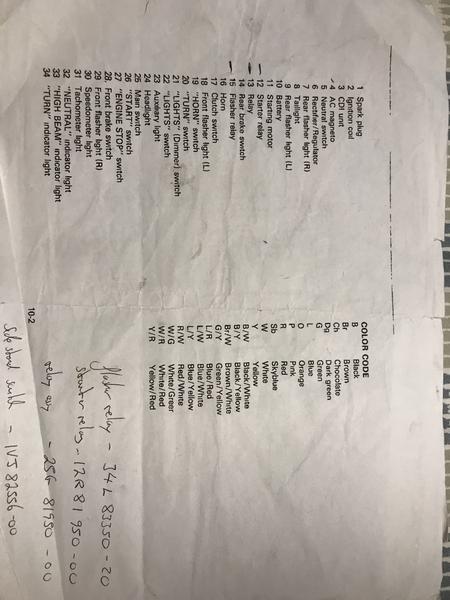 1 Spark plug
2 Ignition coil
3 CDI unit
4 AC magneto
5 Neutral switch
6 Rectifier/Regulator
7 Rear flasher light (R)
8 Taillight
9 Rear flasher light (L)
10 Battery
11 Starting motor
12 Starter relay
13 Relay
14 Rear brake switch
15 Flasher relay
16 Horn
17 Clutch switch
18 Front flasher light (L)
19 "HORN" switch
20 "TURN" switch
21 "LIGHTS" (Dimmer) switch
22 "LIGHTS" switch
23 Auxiliary light
24 Headlight
25 Main switch
26 "START" switch
27 "ENGINE STOP" switch
28 Front brake switch
29 Front flasher light (R)
30 Speedometer light
31 Tachometer light
32 "NEUTRAL" indicator light
33 "HIGH BEAM" indicator light
34 "TURN" indicator light
COLOR CODE
B Black
Br Brown
Ch Chocolate
Dg Dark green
G Green
L Blue
O Orange
P Pink
R Red
Sb Skyblue
W White
Y Yellow
B/W Black/White
B/Y Black/Yellow
Br/W Brown/White
G/Y Green/Yellow
L/R Blue/Red
L/W Blue/White
L/Y Blue/Yellow
R/W Red/White
W/G White/Green
W/R White/Red
Y/R Yellow/Red
10-2
flasher relay - 34L 83350-20
starter relay - 12R 81950-00
relay assy - 25G 81950-00
Side stand switch - 1VJ 82556-00